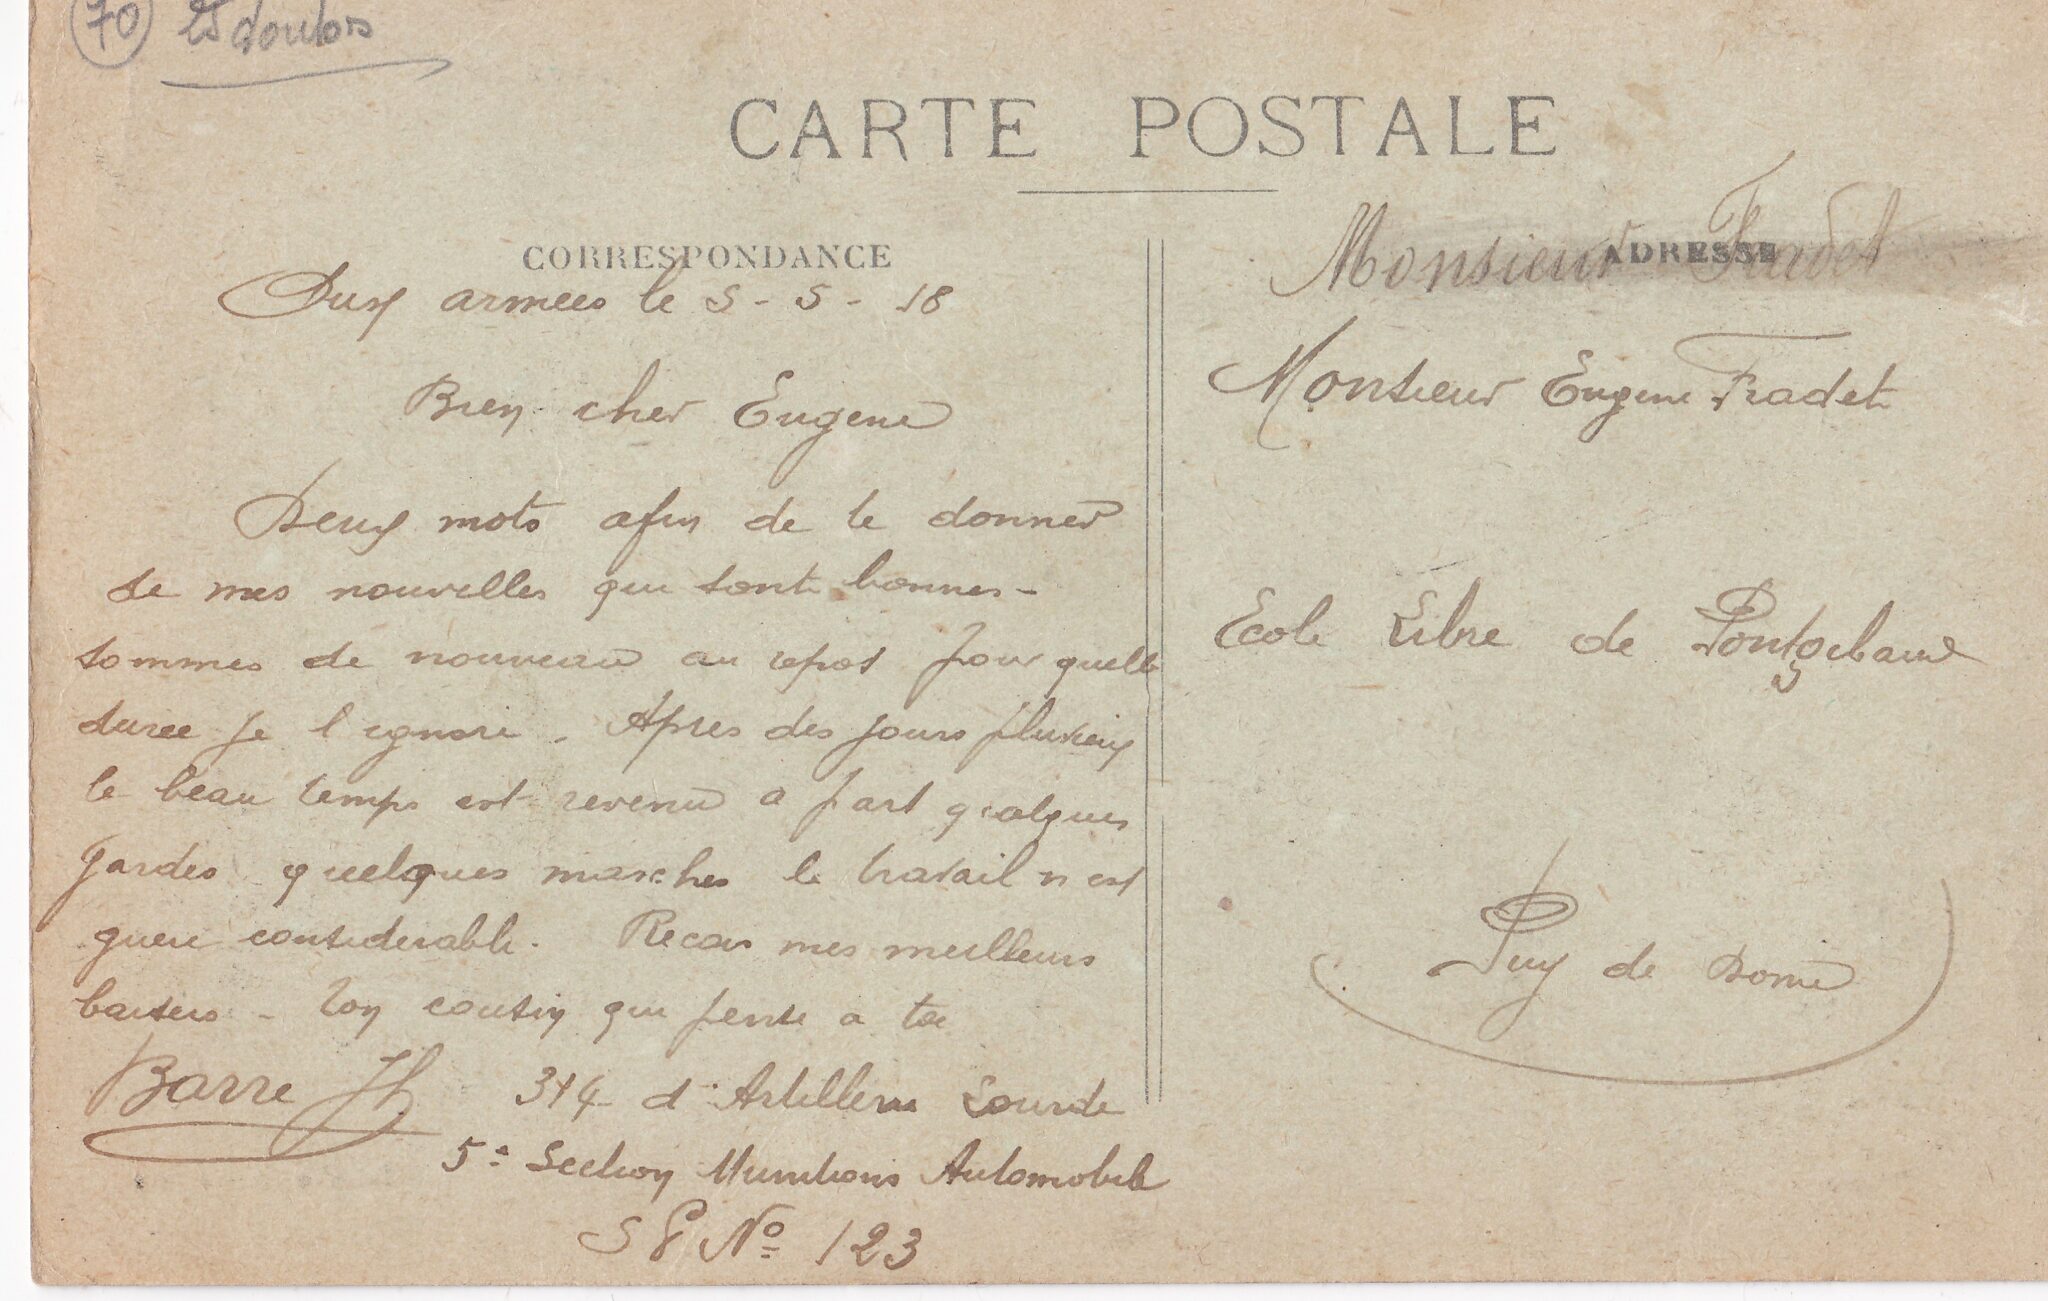 70
CARTE POSTALE
CORRESPONDANCE
Aux armées le 5-5-18
Bien cher Eugene
Deux mots afin de te donner
de mes nouvelles qui sont bonnes -
sommes de nouveau au repos pour quelle
duree je l ignore. Apres des jours pluvieux
le beau temps est revenu a part quelques
gardes quelques marches le travail n est
guere considerable. Recois mes meilleurs
baisers - ton cousin qui pense a toi
Barre Jh
314 d'Artillerie Lourde
5e Section Munitions Automobile
S P No 123
ADRESSE
Monsieur Fradet
Monsieur Eugene Fradet
Ecole Libre de Pontgibaud
Puy de Dome